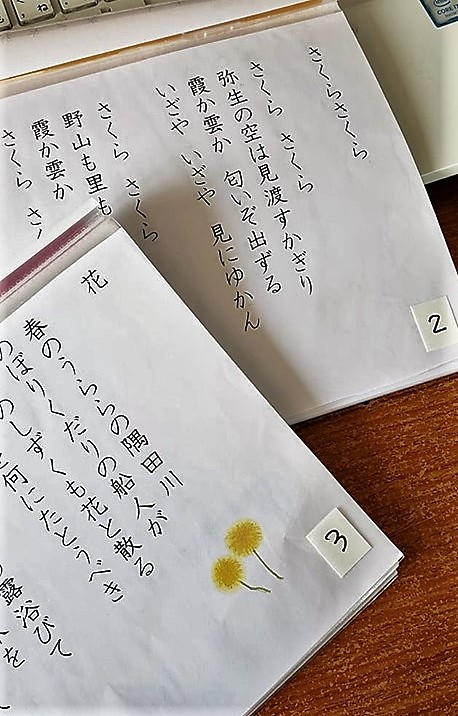 さくらさくら
さくら　さくら
弥生の空は見渡すかぎり
霞か雲か　匂いぞ出ずる
いざや　いざや　見にゆかん
さくら　さくら
野山も里も
霞か雲か
さくら　さ
2
花
春のうららの隅田川
のぼりくだりの船人が
のしずくも花と散る
何にたとうべき
露浴びて
を
3
CORE